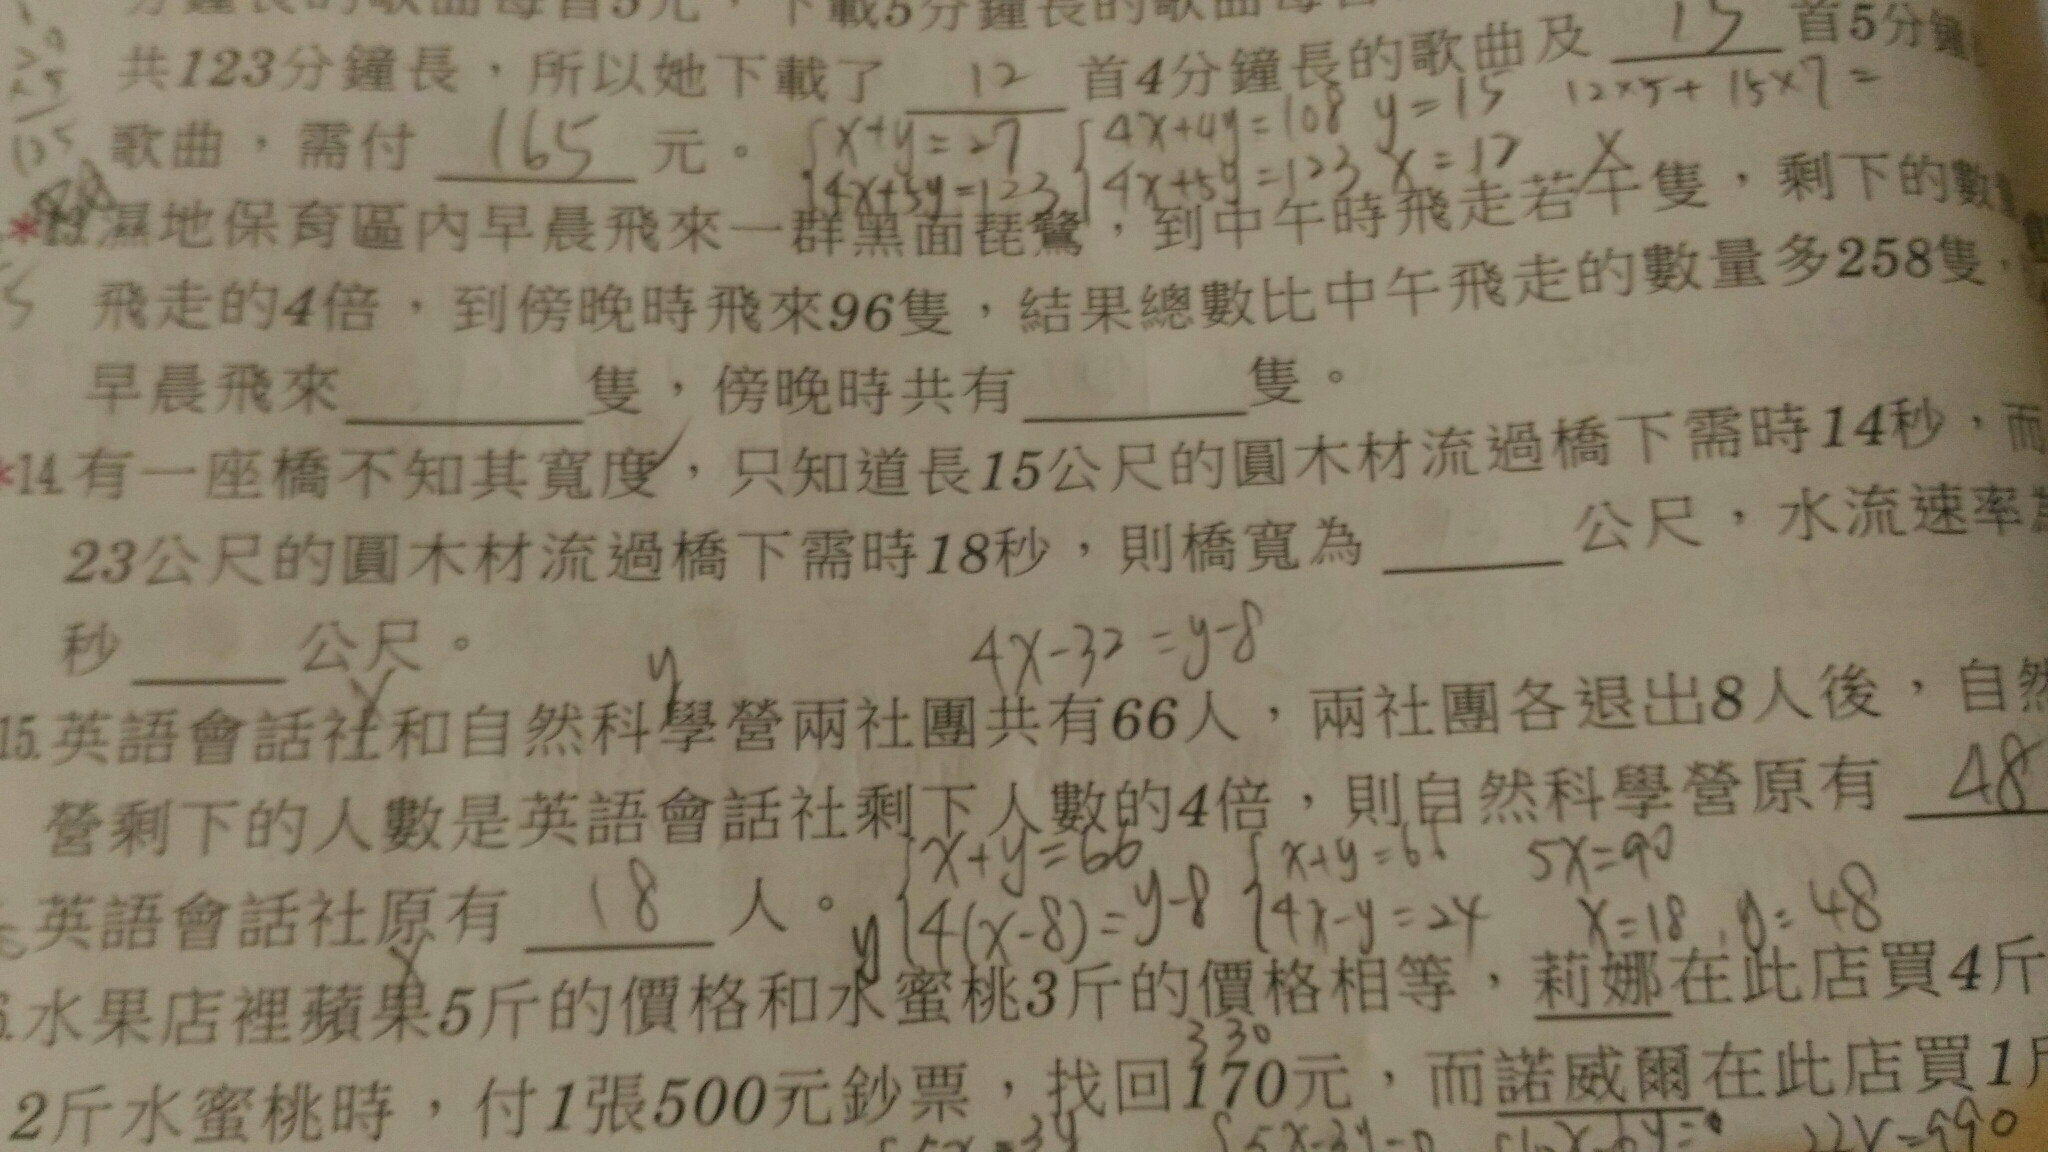 共123分鐘長，所以她下載了 12 首4分鐘長的歌曲及 15 首5分鐘
x+y=27 4x+4y=108 y=15 12×5+15×7=
歌曲，需付 165 元。
4x+5y=123 4x+5y=123 x=12 x
*13.濕地保育區內早晨飛來一群黑面琵鷺，到中午時飛走若干隻，剩下的數
飛走的4倍，到傍晚時飛來96隻，結果總數比中午飛走的數量多258隻，
早晨飛來 隻，傍晚時共有 隻。
*14.有一座橋不知其寬度，只知道長15公尺的圓木材流過橋下需時14秒，而
23公尺的圓木材流過橋下需時18秒，則橋寬為 公尺，水流速率為
秒 公尺。
x y 4x-32=y-8
15.英語會話社和自然科學營兩社團共有66人，兩社團各退出8人後，自然
營剩下的人數是英語會話社剩下人數的4倍，則自然科學營原有 48
x+y=66 x+y=66 5x=90
英語會話社原有 18 人。
4(x-8)=y-8 4x-y=24 x=18 y=48
x y
水果店裡蘋果5斤的價格和水蜜桃3斤的價格相等，莉娜在此店買4斤
330
2斤水蜜桃時，付1張500元鈔票，找回170元，而諾威爾在此店買1斤
5x=3y 5x-3y=0 22x=990